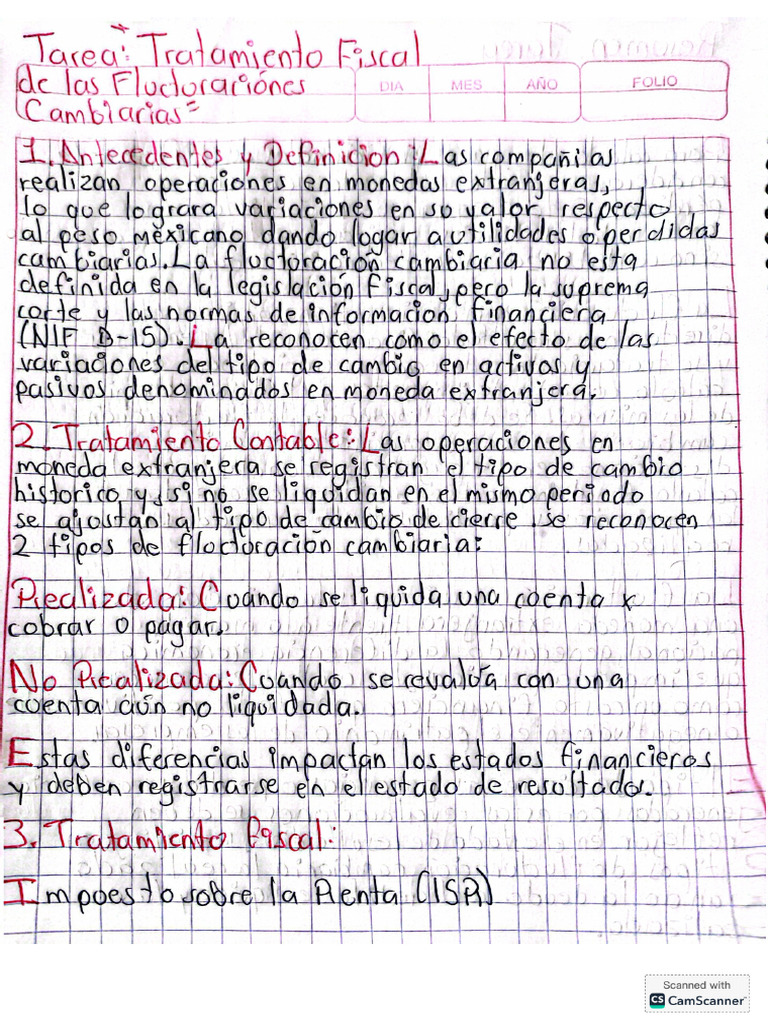 Tarea: Tratamiento Fiscal
de las Floctoraciónes
Cambiarias=
DIA MES AÑO FOLIO
1. Antecedentes y Definicion: Las compañias
realizan operaciones en monedas extranjeras,
lo que lograra variaciones en so valor respecto
al peso mexicano dando logar a utilidades o perdidas
cambiarias. La floctoración cambiaria no esta
definida en la legislación Fiscal, pero la suprema
corte y las normas de informacion financiera
(NIF B-15). La reconocen como el efecto de las
variaciones del tipo de cambio en activos y
pasivos denominados en moneda extranjera.
2. Tratamiento Contable: Las operaciones en
moneda extranjera se registran el tipo de cambio
historico y, si no se liquidan en el mismo periodo
se ajostan al tipo de cambio de cierre se reconocen
2 tipos de floctoración cambiaria:
Realizada: Coando se liquida una coenta x
cobrar o pagar.
No Realizada: Cuando se revalúa con una
coenta aún no liquidada.
Estas diferencias impactan los estados financieros
y deben registrarse en el estado de resoltados.
3. Tratamiento fiscal:
Impoesto sobre la Renta (ISR)
Scanned with
CS CamScanner